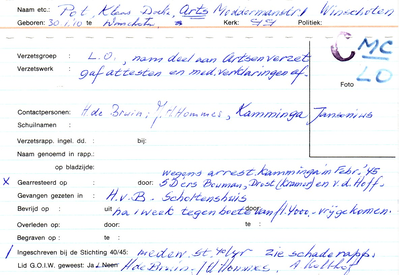 Naam etc.: Pot, Klaas Derk, Arts Meddermanstr. 1 Winschoten
Geboren: 30.1.10 te Winschoten Kerk: Politiek:
MC
LO
Verzetsgroep : L.O., nam deel aan Artsenverzet
Verzetswerk : gaf attesten en med. verklaringen af.
Foto
Contactpersonen: H de Bruin, H Hommes, Kamminga, Jansonius
Schuilnamen :
Verzetsrapp. ingel. dd. : bij:
Naam genoemd in rapp.:
op bladzijde: wegens arrest. Kamminga in Febr. '45
x Gearresteerd op : door: SDers Bouman, Drost (Kramer) en v.d. Hoff.
Gevangen gezeten in : H.v.B. - Scholtenshuis
Bevrijd op : uit na 1 week tegen boete van vrijgekomen.
Overleden op: te:
Begraven op : te:
Ingeschreven bij de Stichting 40/45: medew. St. 40/45 zie schaderapp.
Lid G.O.I.W. geweest: Ja / Neen: H de Bruin, H Hommes, A Kolthof